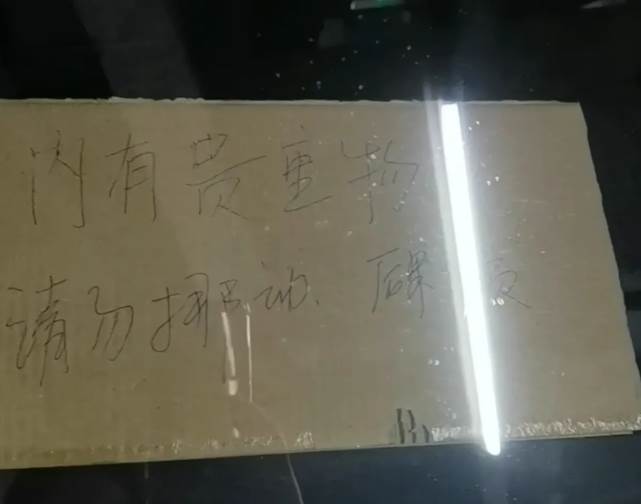 内有贵重物
请勿挪动、